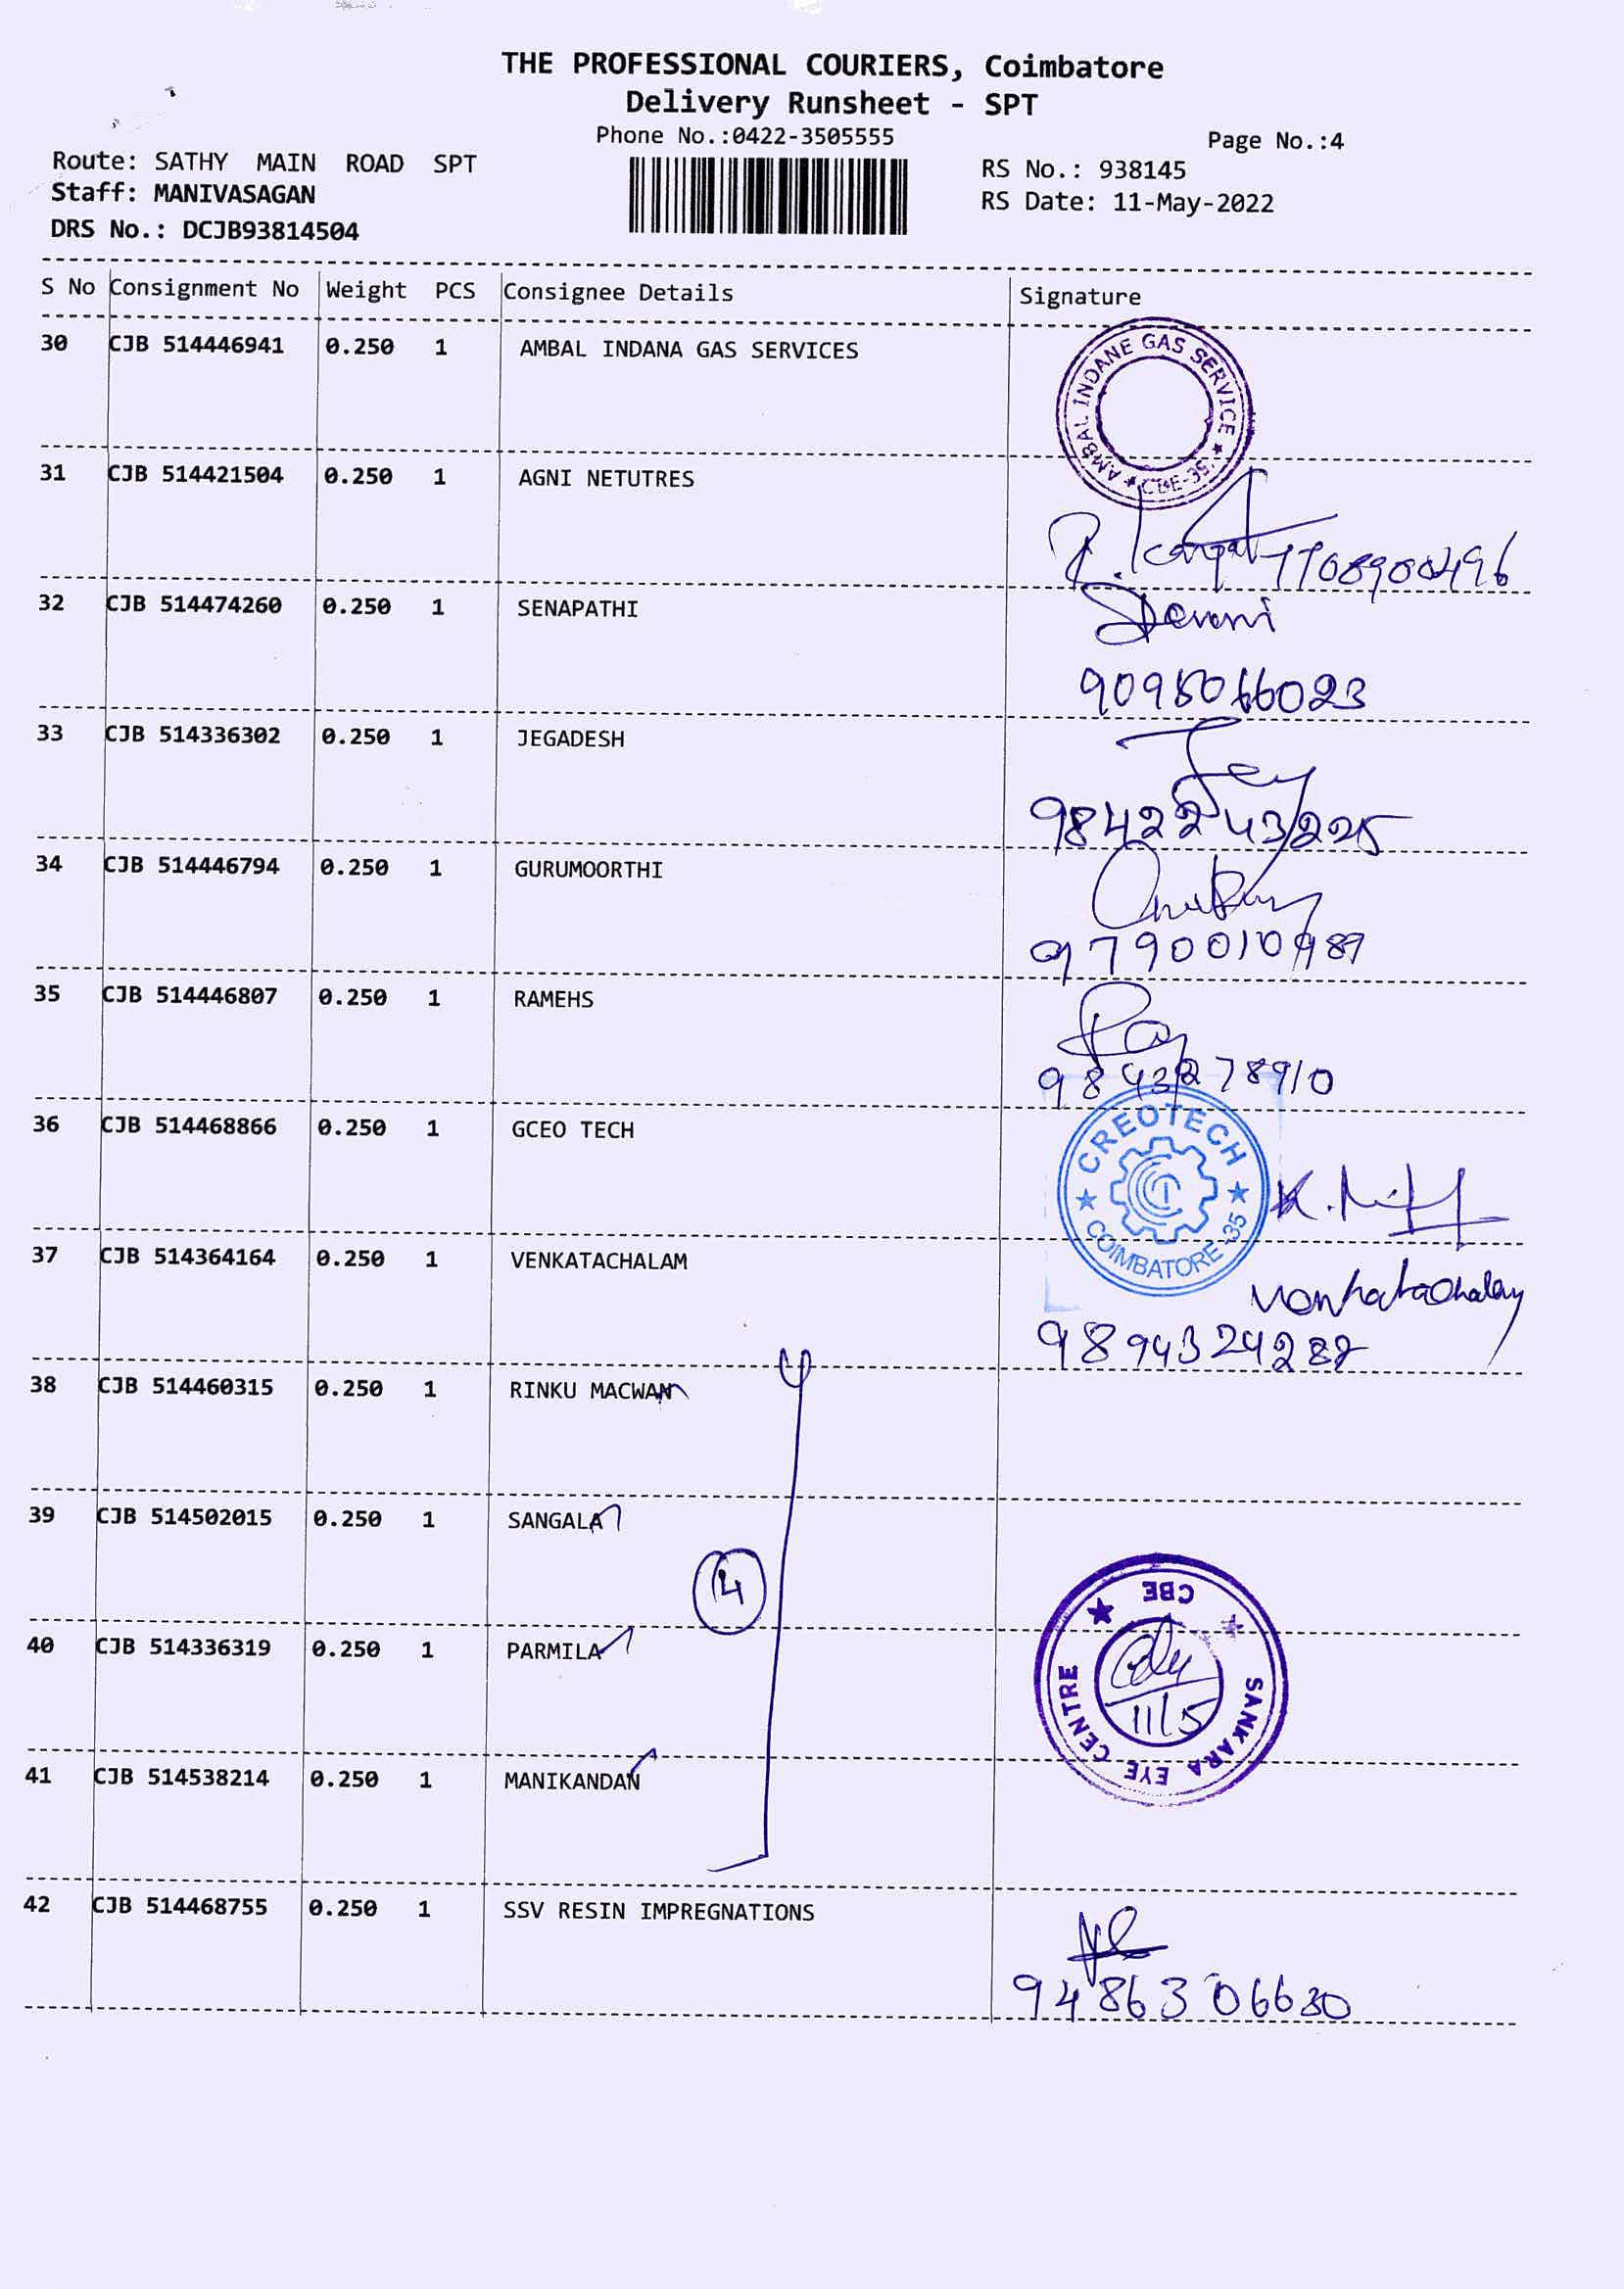 THE PROFESSIONAL COURIERS, Coimbatore
Delivery Runsheet - SPT
Phone No.:0422-3505555
Page No.:4
Route: SATHY MAIN ROAD SPT
RS No.: 938145
Staff: MANIVASAGAN
RS Date: 11-May-2022
DRS No.: DCJB93814504
S No Consignment No Weight PCS Consignee Details Signature
30 CJB 514446941 0.250 1 AMBAL INDANA GAS SERVICES
AMBAL INDANE GAS SERVICE ★ CBE-35. ★
31 CJB 514421504 0.250 1 AGNI NETUTRES
7708900496
32 CJB 514474260 0.250 1 SENAPATHI
9095066023
33 CJB 514336302 0.250 1 JEGADESH
9842243225
34 CJB 514446794 0.250 1 GURUMOORTHI
9790010989
35 CJB 514446807 0.250 1 RAMEHS
9843278910
36 CJB 514468866 0.250 1 GCEO TECH
★ CREOTECH ★ COIMBATORE-35
37 CJB 514364164 0.250 1 VENKATACHALAM
Venkatachalam
9894324282
38 CJB 514460315 0.250 1 RINKU MACWAN
39 CJB 514502015 0.250 1 SANGALA
4
40 CJB 514336319 0.250 1 PARMILA
★ SANKARA EYE CENTRE ★ CBE
11/5
41 CJB 514538214 0.250 1 MANIKANDAN
42 CJB 514468755 0.250 1 SSV RESIN IMPREGNATIONS
9486306630